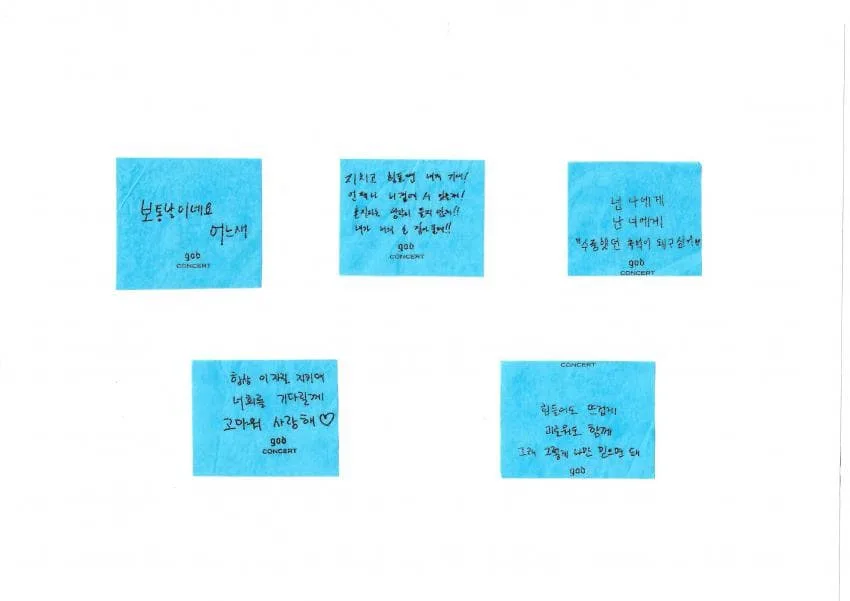 보통날이네요
어느새
god
CONCERT
지치고 힘들땐 내게 기대!
언제나 니곁에 서 있을게!
혼자라는 생각이 들지 않게!!
내가 너의 손 잡아줄게!!
god
CONCERT
넌 나에게
난 너에게!
축복이 돼구싶어♥
god
CONCERT
항상 이 자릴 지키며
너희를 기다릴게
고마워 사랑해♡
god
CONCERT
CONCERT
힘들어도 뜨겁게
괴로워도 함께
그래 그렇게 나만 믿으면 돼
god